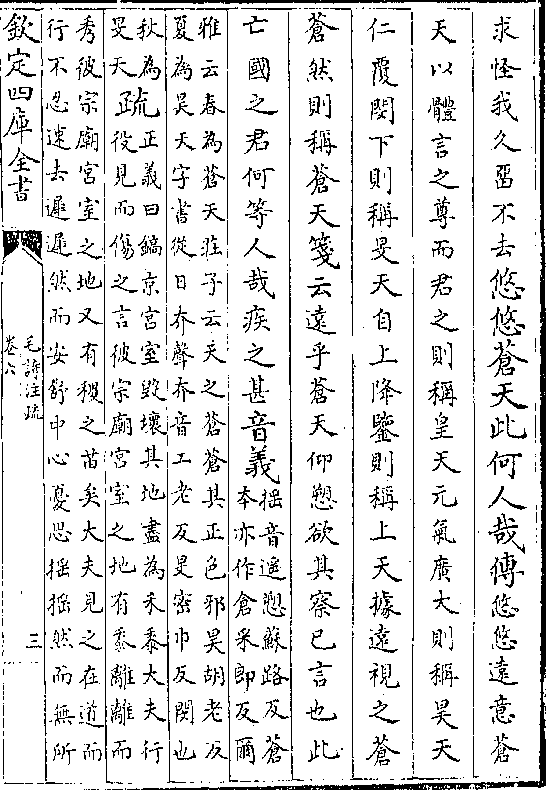 求怪我久留不去悠悠蒼天此何人哉傳悠悠遠意蒼
天以體言之尊而君之則稱皇天元氣廣大則稱昊天
仁覆閔下則稱旻天自上降鑒則稱上天據遠視之蒼
蒼然則稱蒼天箋云遠乎蒼天仰愬欲其察已言也此
亡國之君何等人哉疾之甚音義
揺音遥愬蘇路反蒼
本亦作倉采郎反爾
雅云春為蒼天莊子云天之蒼蒼其正色邪昊胡老反
夏為昊天字書從日夰聲夰音工老反旻密巾反閔也
秋為旻天
疏
正義曰鎬京宫室毁壞其地盡為禾黍大夫行
役見而傷之言彼宗廟宫室之地有黍離離而
秀彼宗廟宫室之地又有稷之苗矣大夫見之在道而
行不忍速去遲遲然而安舒中心憂思揺揺然而無所
欽定四庫全書
毛詩注疏
卷六
三